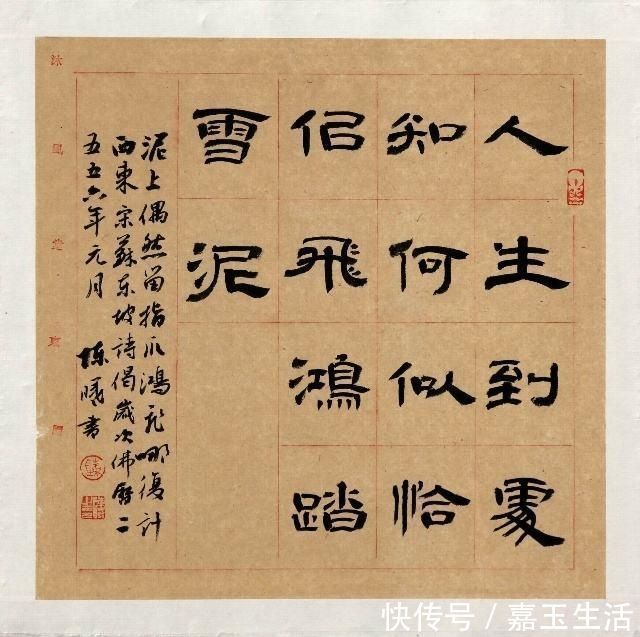 人生到處
知何似恰
佀飛鴻踏
雪泥
泥上偶然留指爪鴻飛哪復計
西東宋蘇东坡詩偈歲次佛曆二
五五六年元月
陳曦書
快传号/嘉玉生活